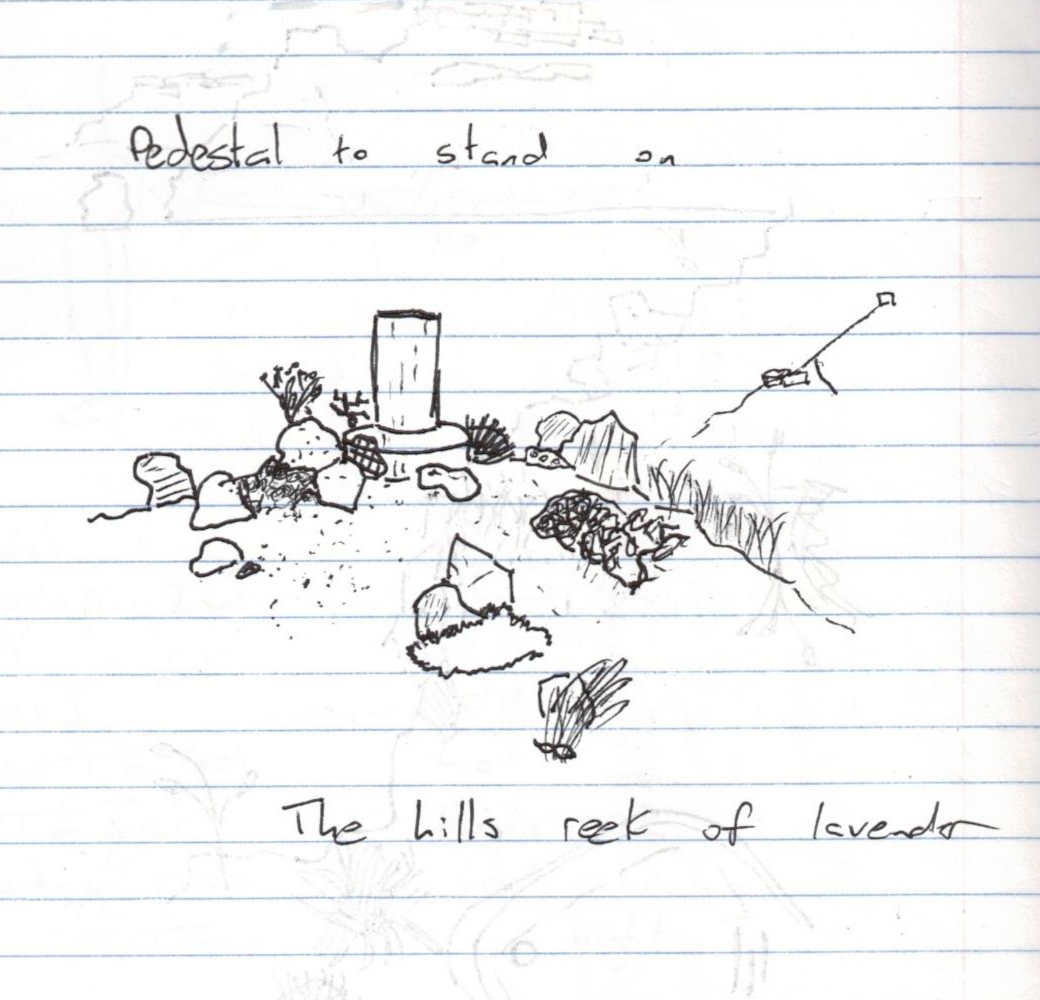 Pedestal to stand on
The hills reek of lavender